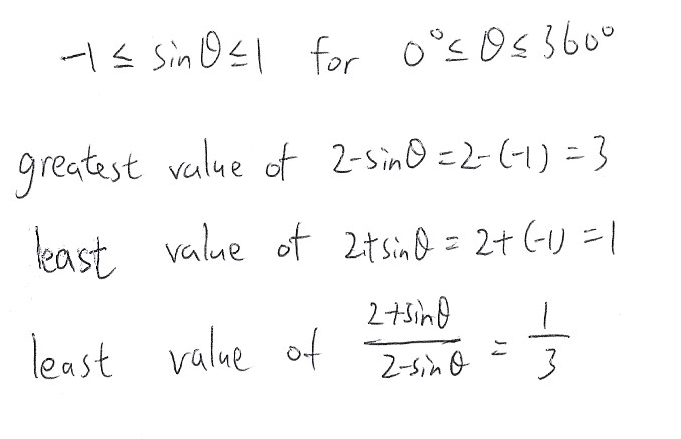 -1 ≤ sinθ ≤ 1 for 0° ≤ θ ≤ 360°
greatest value of 2-sinθ = 2-(-1) = 3
least value of 2+sinθ = 2+(-1) = 1
least value of (2+sinθ)/(2-sinθ) = 1/3